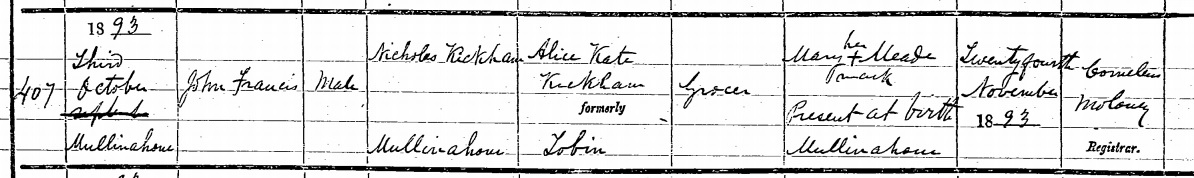 407
1893
Third
October
september
Mullinahone
John Francis
Male
Nicholas Kickham
Mullinahone
Alice Kate
Kickham
formerly
Tobin
Grocer
Mary her + Meade
mark
Present at birth
Mullinahone
Twentyfourth
November
1893
Cornelius
Moloney
Registrar.